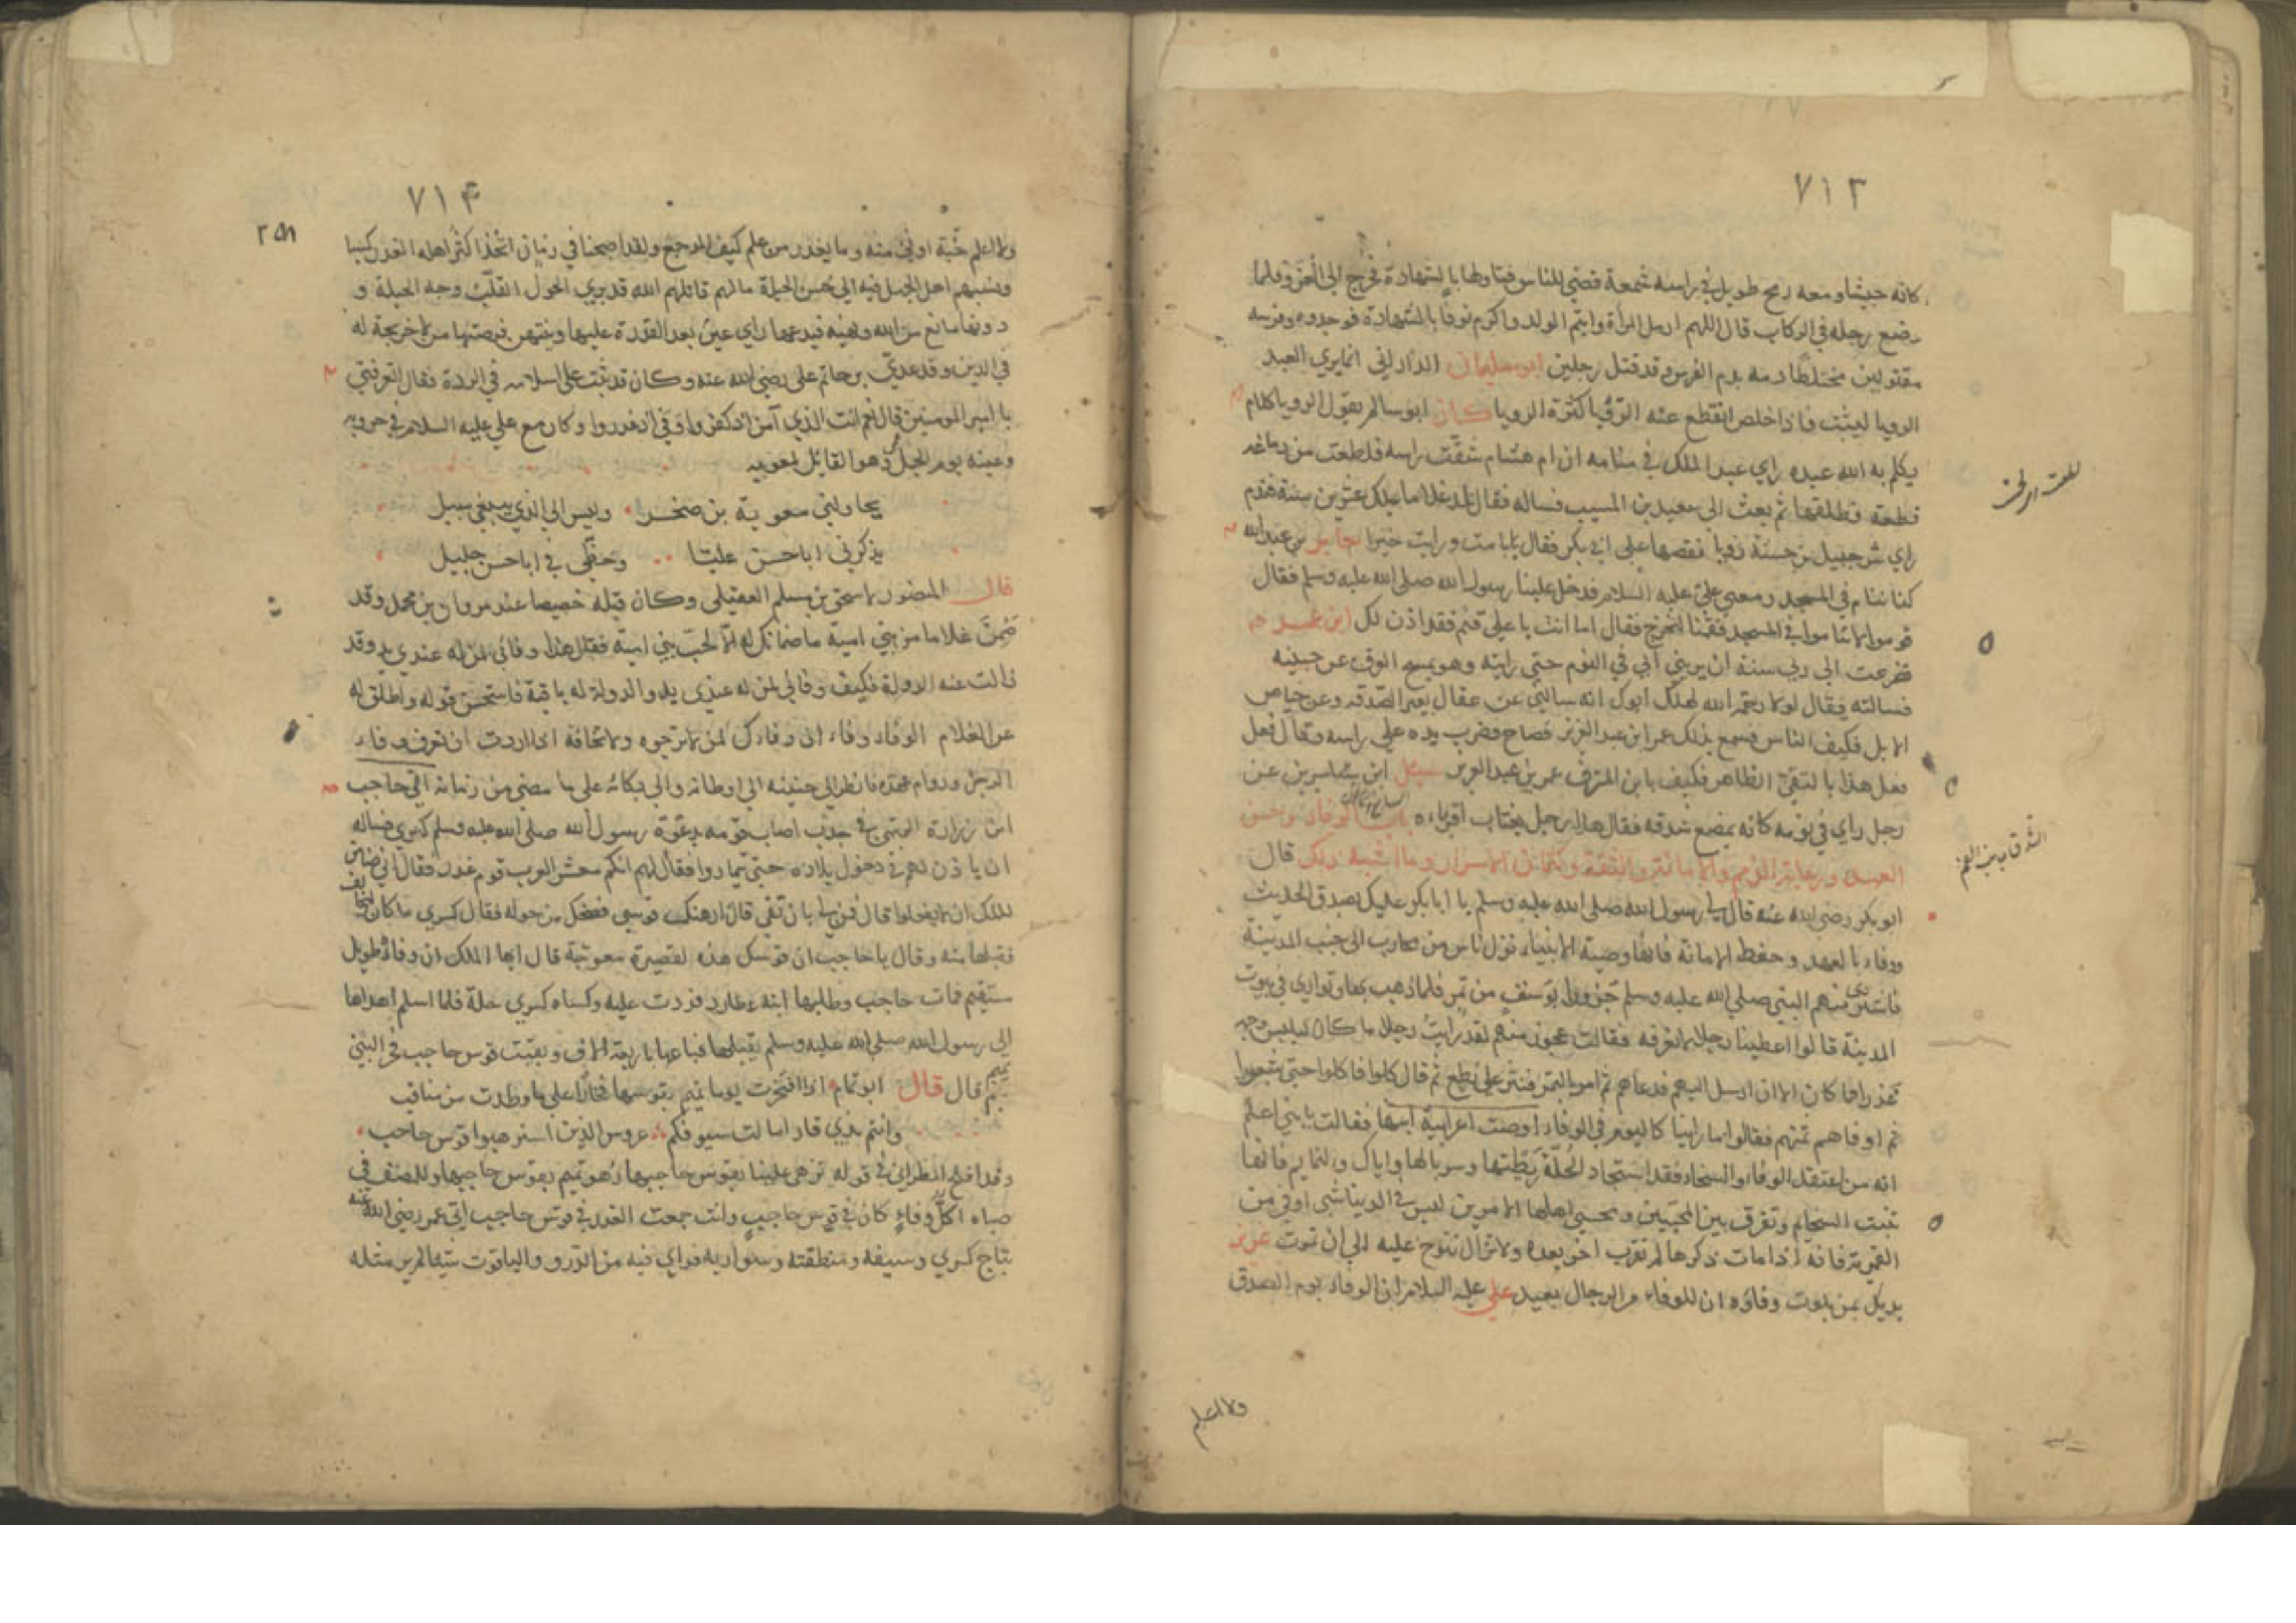 ٧١٣
كانه حبشا ومعه رمح طويل في راسه شمعة فضي للناس فتاولها بالشهادة فخرج الى الغزو فلما
وضع رجله في الركاب قال اللهم ارمل المرأة وايتم الولد واكرم نوفا بالشهادة فوجدوه وفرسه
مقتولين مختلطا دمه بدم الفرس وقد قتل رجلين ابو سليمان الداراني انما يري العبد
الرويا ليثبت فاذا اخلص انقطع عنه الرؤيا كثرة الرويا كان ابو سالم يقول الرويا كلام
يكلم به الله عبده راي عبد الملك في منامه ان ام هشام شقت راسه فلطعت من دماغه
قطعة فطلقها ثم بعث الى سعيد بن المسيب فساله فقال تلد غلاما يملك عشرين سنة
راي شرحبيل بن حسنة رويا فقصها على ابي بكر فقال جابر بن عبد الله
كنا ننام في المسجد ومعي علي عليه السلام فدخل علينا رسول الله صلى الله عليه وسلم فقال
قوموا لا تناموا في المسجد فقمنا لنخرج فقال اما انت يا علي فنم فقد اذن لك ابن عمر
تضرعت الى ربي سنة ان يريني ابي في النوم حتى رايته وهو يمسح العرق عن جبينه
فسالته فقال لولا رحمة الله لهلك ابوك انه سالني عن عقال بعير الصدقة وعن حياض
الابل فكيف الناس فسمع بذلك عمر ابن عبد العزيز فصاح وضرب يده على راسه وقال فعل
هذا بالتقي الطاهر فكيف بابن المترف عمر بن عبد العزيز سئل ابن سيرين عن
رجل راي في نومه كانه يمضغ شدقه فقال هذا رجل يغتاب اقرباءه باب الوفاء وحسن
العهد ورعاية الذمم والامانة والثقة وكتمان الاسرار وما اشبه ذلك قال
ابو بكر رضي الله عنه قال لي رسول الله صلى الله عليه وسلم يا ابا بكر عليك بصدق الحديث
ووفاء بالعهد وحفظ الامانة فانها وصية الانبياء نزل ناس من محارب الى جنب المدينة
فاشترى منهم النبي صلى الله عليه وسلم جزورا بوسق من تمر فلما ذهب بها وتواري في بيوت
المدينة قالوا اعطينا رجلا لا نعرفه فقالت عجوز منهم لقد رايت رجلا ما كان ليلبس وجهه
غدرا فما كان الا ان ارسل اليهم فدعاهم ثم امر بالتمر فنثر على نطع ثم قال كلوا فاكلوا حتى شبعوا
ثم اوفاهم ثمنهم فقالوا ما راينا كاليوم في الوفاء اوصت اعرابية ابنها فقالت يا بني اعلم
انه من اعتقد الوفاء والسخاء فقد استجاد الحلة ريطتها وسربالها واياك والنمائم فانها
تنبت السخائم وتفرق بين المحبين وتحسي اهلها الامرين ليس في الدنيا شي اوفى من
القمرية فانه اذا مات ذكرها لم تقرب اخر بعده ولا تزال تنوح عليه الى ان تموت
وفاؤه ان للوفاء من الرجال بعيد علي عليه السلام ان الوفاء يوم الصدق
ولا اعلم
٧١٤
ولا اعلم جنة اوقى منه وما يغدر من علم كيف المرجع ولقد اصبحنا في زمان اتخذ اكثر اهله الغدر كيسا
ونسبهم اهل الجهل فيه الى حسن الحيلة ما لهم قاتلهم الله قد يري الحول القلب وجه الحيلة و
دونها مانع من الله ونهيه فيدعها راي عين بعد القدرة عليها وينتهز فرصتها من لا حريجة له
في الدين وفد عدي بن حاتم على رضي الله عنه وكان قد ثبت على اسلامه في الردة فقال اتعرفني
يا امير المومنين قال نعم انت الذي آمن اذ كفروا ووفي اذ غدروا وكان مع علي عليه السلام في حروبه
وعينه يوم الجمل وهو القايل لمعويه
يحاولني معوية بن صخر وليس الى الذي يبغي سبيل
يذكرني ابا حسن عليا وحظي في ابا حسن جليل
قال المنصور لاسحق بن مسلم العقيلي وكان قبله خصيصا عند مروان بن محمد وقد
ضمن غلاما من بني امية ما ضمانك له الا لحب بني امية فقال هذا وفائي لمن له عندي يد وقد
زالت عنه الدولة فكيف وفائي لمن له عندي يد والدولة له باقية فاستحسن قوله واطلق له
عن الغلام الوفاء وفاء الى وفاءك لمن لا ترجوه ولا تخافه اذا اردت ان تعرف وفاء
الرجل ودوام عهده فانظر الى حنينه الى اوطانه والى بكائه على ما مضى من زمانه اتى حاجب
ابن زرارة التميمي في جدب اصاب قومه بدعوة رسول الله صلى الله عليه وسلم كسري فساله
ان ياذن لهم في دخول بلاده حتى يمتاروا فقال لهم انكم معشر العرب قوم غدر فقال اني ضامن
للملك ان لا يفعلوا قال فمن لي بان تفي قال ارهنك قوسي فضحك من حوله فقال كسري ما كان
فقبلها منه وقال يا حاجب ان قوسك هذه لقصيرة معوجة قال ايها الملك ان وفائي طويل
مستقيم فمات حاجب وطلبها ابنه عطارد فردت عليه وكساه كسري حلة فلما اسلم اهداها
الى رسول الله صلى الله عليه وسلم فلم يقبلها فباعها باربعة الاف وبقيت قوس حاجب فخر البني
تميم قال قال ابو تمام اذا افتخرت يوما تميم بقوسها فخارا على ما وطدت من مناقب
وانتم بذي قار امالت سيوفكم عروس الذين استرهنوا قوس حاجب
وقد افلح المطراني في قوله تزهى علينا بقوس حاجبها زهو تميم بقوس حاجبها وللمصنف في
صباه اكل وفاء كان في قوس حاجب وانت جمعت الغدر في قوس حاجب اتي عمر رضي الله عنه
بتاج كسري وسيفه ومنطقته وسواريه فراي فيه من الدر والياقوت شيئا لم ير مثله